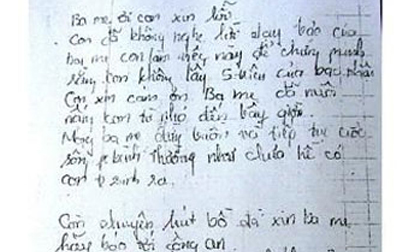 Ba mẹ ơi con xin lỗi
Con đã không nghe lời dạy bảo của
ba mẹ con làm việc này để chứng minh
rằng con không lấy 5 triệu của bạn
Con xin cảm ơn Ba mẹ đã nuôi
nấng con từ nhỏ đến bây giờ.
Mong ba mẹ đừng buồn và tiếp tục cuộc
sống bình thường như chưa hề có
con sinh ra.
Còn chuyện hút bồ đà xin ba mẹ
hãy báo với công an